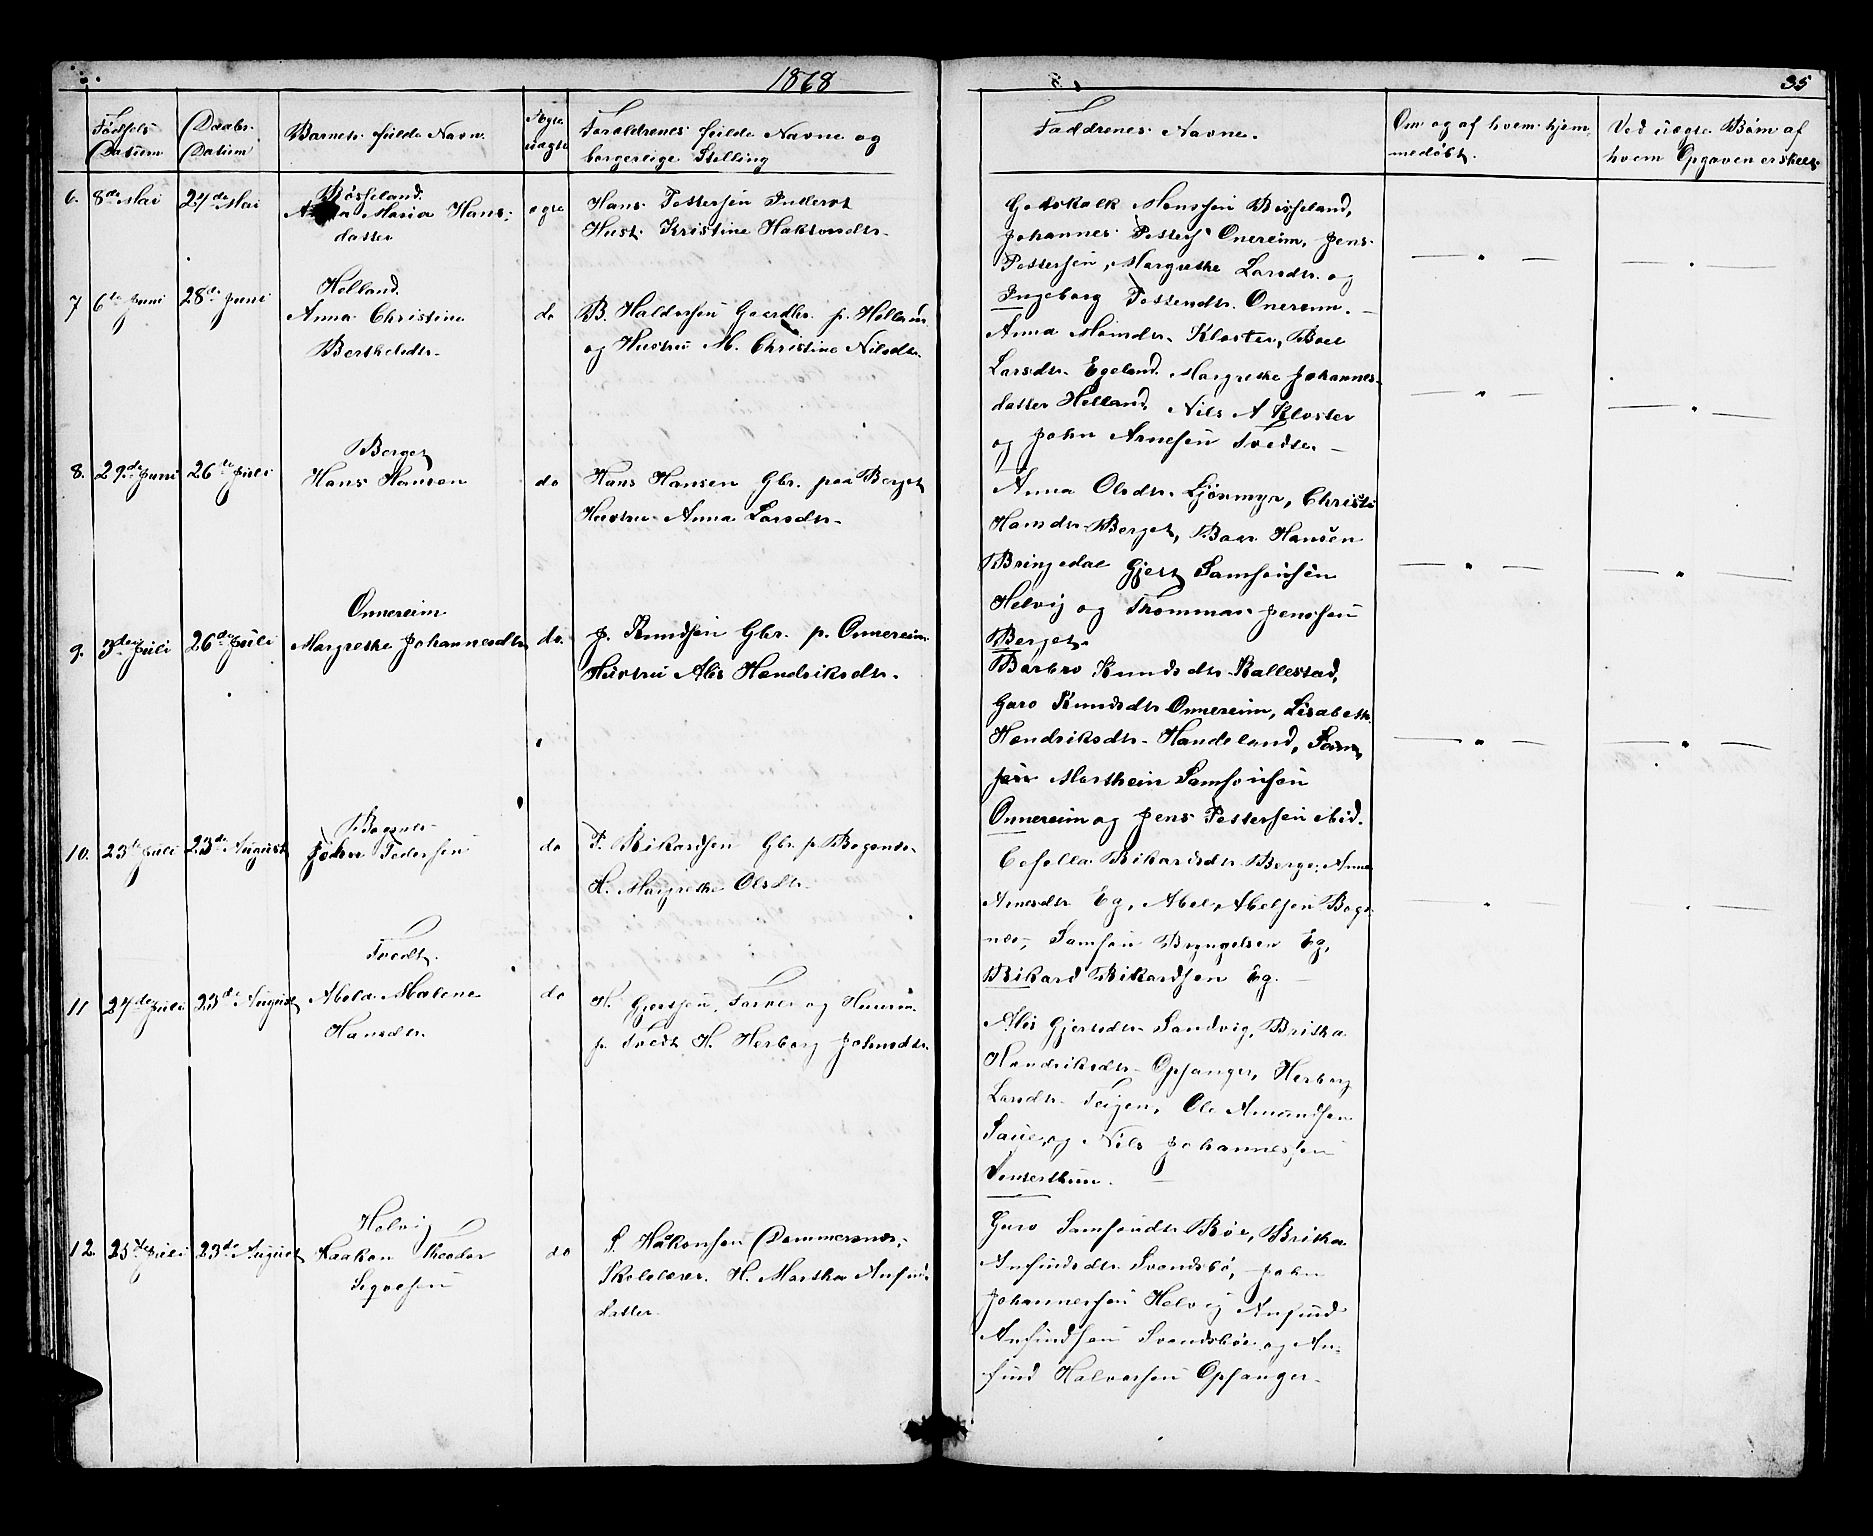 1868
35
Fødsels Datum
Daabs Datum
Barnets fulde Navn
Ægte uægte
Forældrenes fulde Navne og borgerlige Stilling
Faddrenes Navne.
Om og af hvem hjemmedøbt.
Ved uægte Børn af hvem Opgaven er skeet
6. 8de Mai 24de Mai
Røsseland.
Anna Maria Hans-
datter
ægte
Hans Pettersen
Hust. Kristine Haktorsdtr.
Gotskalk Monssen Røsseland,
Johannes Petters. Onereim, Jens
Pettersen, Margrethe Larsdtr. og
Ingeborg Onereim. —
7 6te Juni 28de Juni
Helland.
Anna Christine
Bertheldtr.
do
B. Haldorsen Gaardbr. p. Helland
og Hustru M. Christine Nilsdtr.
Anna Kloster, Boel
Larsdtr. Egeland. Margrethe Johannes-
datter Helland, Nils A Kloster
og John Arnesen Tvedten —
8. 29de Juni 26de Juli
Berget
Hans Hansen
do
Hans Hansen Gbr. paa Berget
Hustru Anna Larsdtr.
Anna Olsdtr. Ljønmyr, Christi
Hansdtr Berget, Baar Hansen
Bringedal Gjert Samsonsen
Helvig og Thommas Jenssen
Berget.
9. 3die Juli 26de Juli
Onnereim
Margrethe Johannesdtr
do.
J. Knudsen Gbr. p. Onnereim
Hustru Alis Hendriksdtr.
Barbro Knudsdtr Kallestad,
Guro Knudsdtr Onnereim, Lisabeth
Hendriksdtr. Handeland, Sam
sen Marthein Samsonsen
Onnereim og Jens Pettersen ibid.
10. 23de Juli 23de August
Bogsnes
John Pedersen
do
P. Rikardsen Gbr. p. Bogsnes
H. Margrethe Olsdtr.
Cesella Rikardsdtr Berge, Anna
Arnesdtr Eg, Abel Abelsen Bogs-
nes, Samson Bryngelsen Eg,
Rikard Rikardsen Eg. —
11 24de Juli 23de August
Tvedt.
Abela Malene
Hansdtr.
do
H. Gjertsen,
p. Tvedt H. Herborg Johnsdtr.
Alis Gjertsdtr Sandvig, Britha
Hendriksdtr Opsanger, Herborg
Larsdtr Teigen, Ole Amundsen
Saue og Nils Johannessen
12. 25de Juli 23de August
Helvig
Haakon Theodor
Sigvesen
do
S. Håkonsen Dommersnes,
Skolelærer. H. Martha Anfinds
datter
Guro Samsonsdtr Bøe, Britha
Anfindsdtr Svendsbø, John
Johannessen Helvig Anfind
Anfindsen Svendsbøe og An-
find Halvorsen Opsanger.